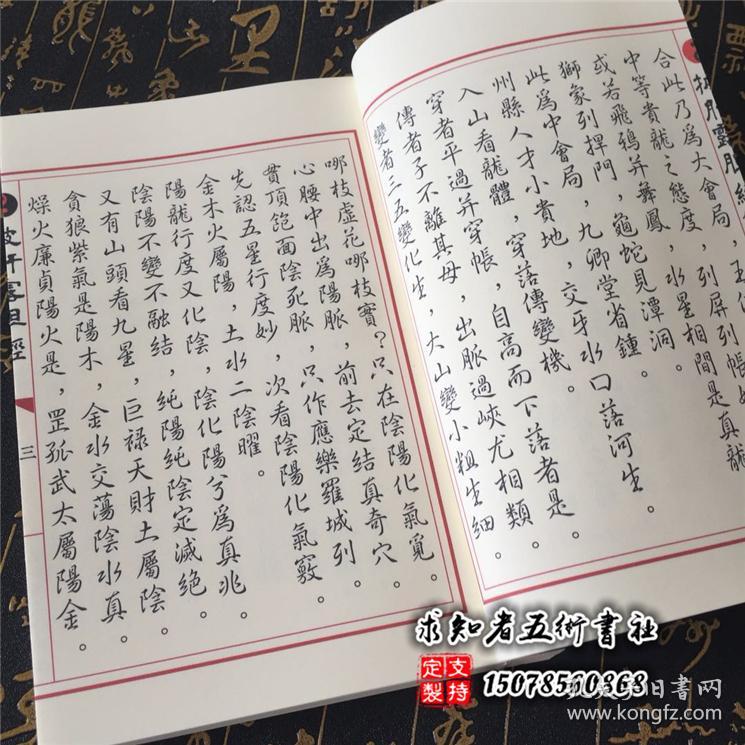 合此乃爲大會局，
中等貴龍之態度，列屏列帳
或若飛鴉并舞鳳，水星相間是真龍
獅象列捍門，龜蛇見潭洞。
此爲中會局，九卿堂省鍾。
州縣人才小貴地，交牙水口落河生。
入山看龍體，穿落傳變機。
穿者平過并穿帳，自高而下落者是。
傳者子不離其母，出脈過峽尤相類。
變者二五變化生，大山變小粗生細。
哪枝虛花哪枝實？只在陰陽化氣覓。
心腰中出爲陽脈，前去定結真奇穴。
貫頂飽面陰死脈，只作應樂羅城列。
先認五星行度妙，次看陰陽化氣竅。
金木火屬陽，土水二陰曜。
陽龍行度又化陰，陰化陽兮爲真兆。
陰陽不變不融結，純陽純陰定滅絕。
又有山頭看九星，巨禄天財土屬陰。
貪狼紫氣是陽木，金水交蕩陰水真。
燥火廉貞陽火是，罡孤武太屬陽金。
經
三
求知者五術書社
支持定製
15078510868
旧書网
www.kongfz.com